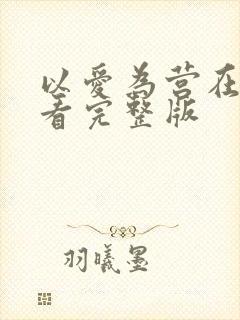 以爱为营在
看完整版
羽曦墨